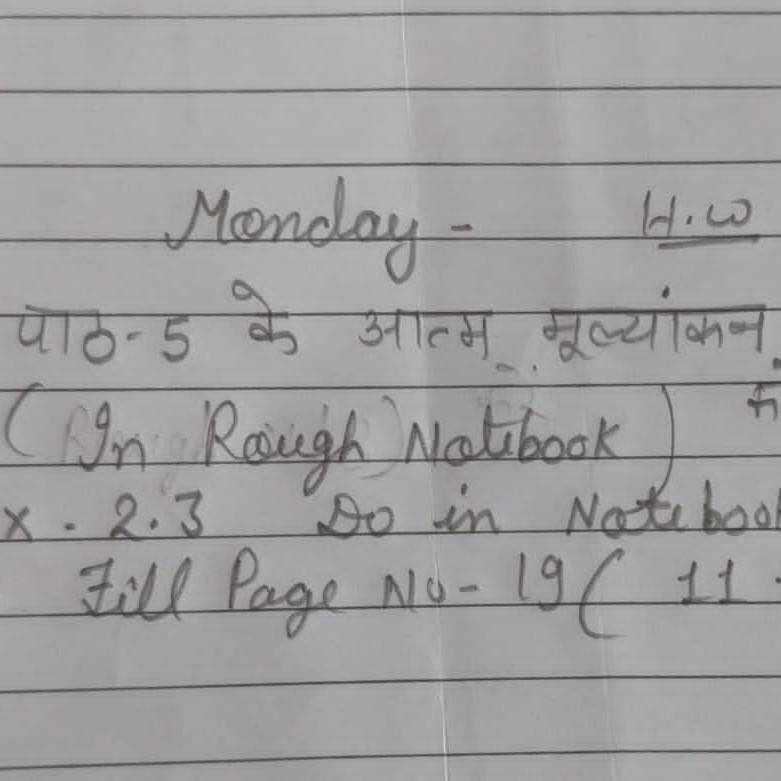 Monday - H.W
पाठ-5 के आत्म मूल्यांकन
(In Rough Notebook)
x. 2.3 Do in Notebook
Fill Page No - 19 ( 11